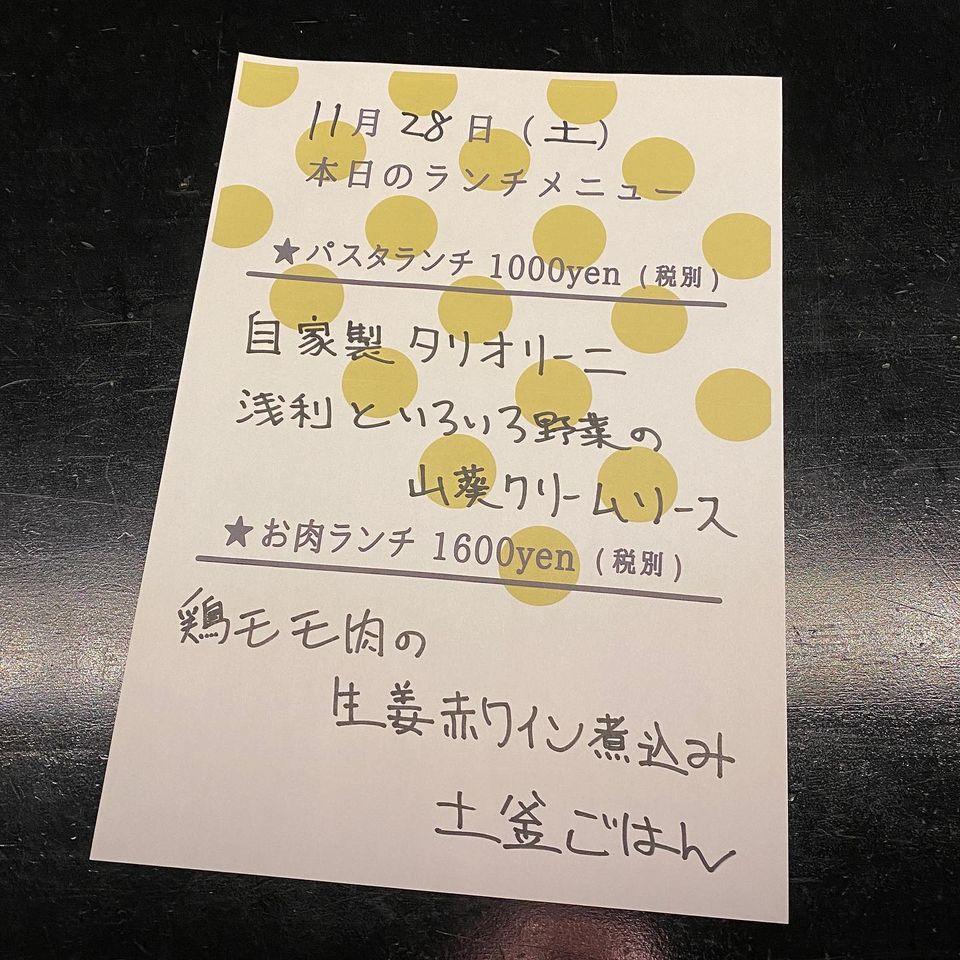 11月28日(土)
本日のランチメニュー
★パスタランチ 1000yen (税別)
自家製タリオリーニ
浅利といろいろ野菜の
山葵クリームソース
★お肉ランチ 1600yen (税別)
鶏モモ肉の
生姜赤ワイン煮込み
土釜ごはん